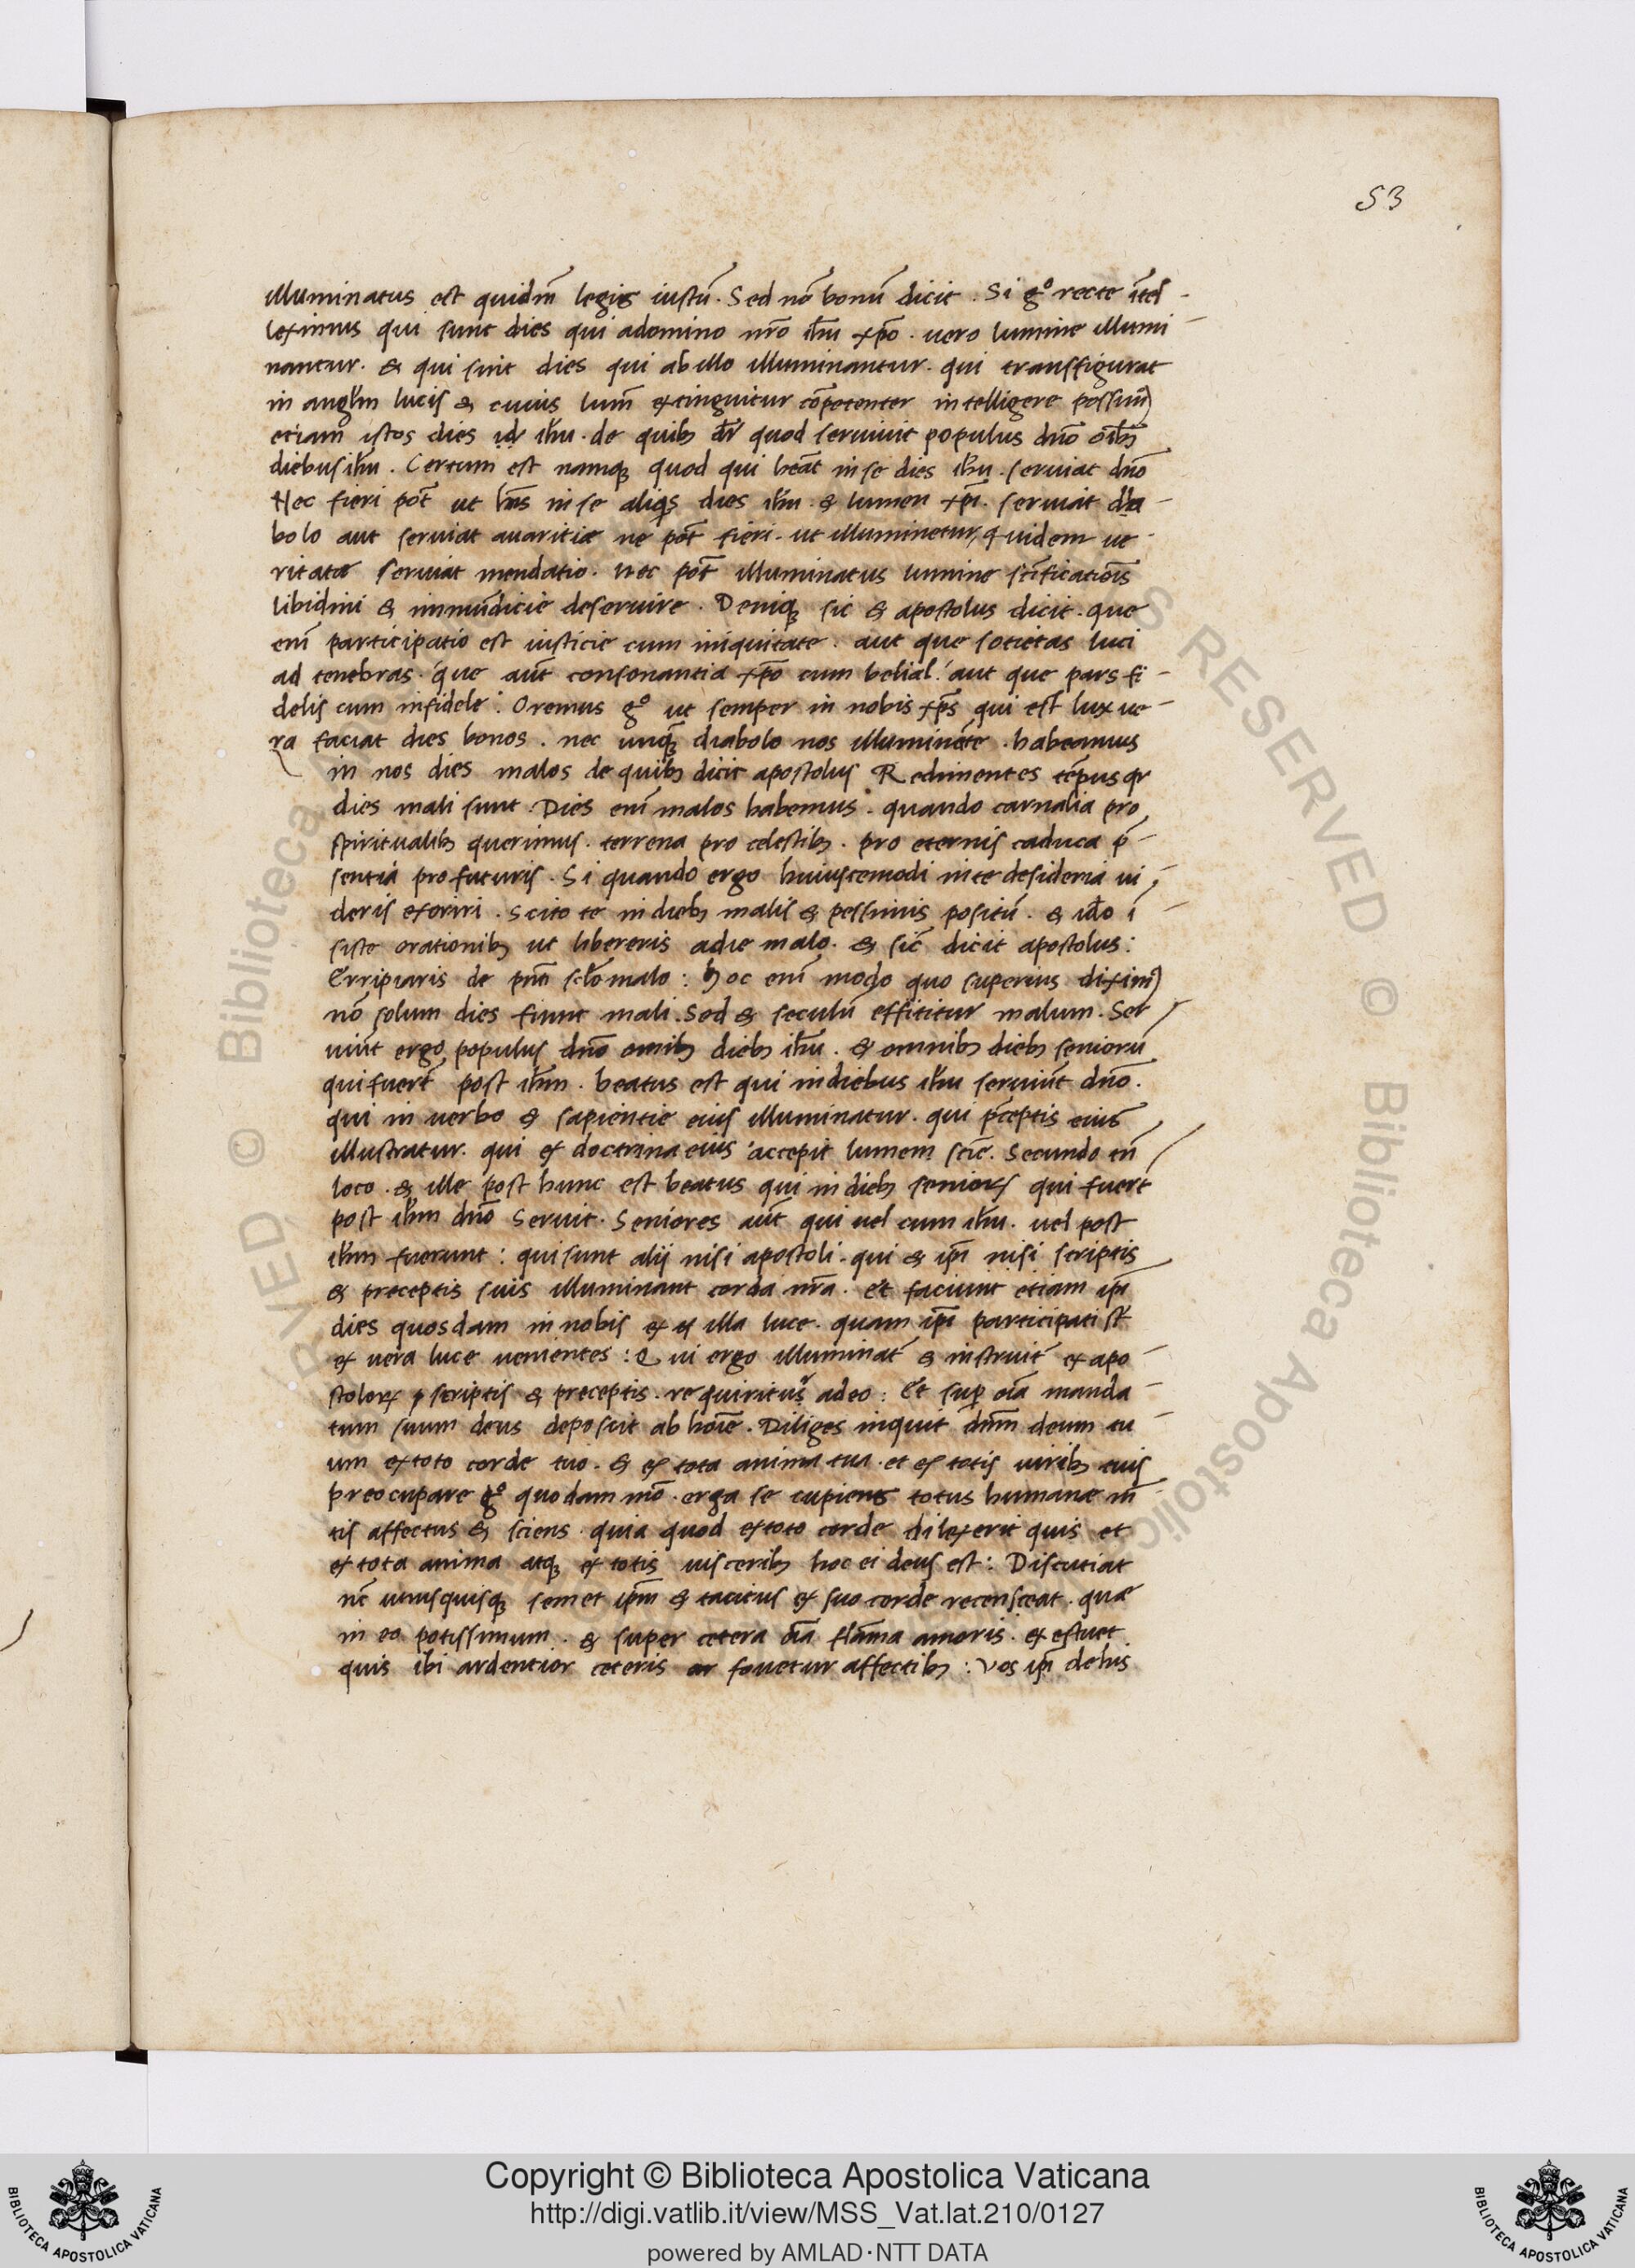 53
illuminatus est quidm̄ legis iustū. Sed nō bonū dicit. Si gº recte ītel-
leximus qui sunt dies qui adomino nr̄o ih̄u xp̄o. uero lumine illumi-
nantur. & qui sint dies qui ab illo illuminantur. qui transfigurat
in angl̄m lucis & cuius lum̄ extinguitur cōpetenter intelligere possum᾿
etiam istos dies ih̄u. de quib; dr̄ quod seruiuit populus dn̄o oīb;
diebus ih̄u. Certum est namq; quod qui hēat in se dies ih̄u. seruiat dn̄o
Nec fieri pōt ut hn̄s in se aliq̄s dies ih̄u & lumen xp̄i. seruiat dia-
bolo aut seruiat auaritiæ ne pōt fieri. ut illuminetur quidem ue-
ritatæ seruiat mendatio. Nec pōt illuminatus lumine sc̄ificatiōis
libidini & immūdicie deseruire. Deniq; sic & apostolus dicit. que
eni᷃ participatio est iusticie cum iniquitate. aut que sotietas luci
ad tenebras. que aūt consonantia xp̄o cum belial. aut que pars fi-
delis cum infidele. Oremus gº ut semper in nobis xp̄s qui est lux ue-
ra faciat dies bonos. nec unq̄; diabolo nos illumināte. habeamus
in nos dies malos de quib; dicit apostolus Redimentes tēpus qr̄
dies mali sunt. Dies enī malos habemus. quando carnalia pro
spiritualib; querimus. terrena pro celestib;. pro eternis caduca p̄-
sentia profuturis. Si quando ergo huiuscemodi in te desideria ui-
deris exoriri. scito te in dieb; malis & pessimis positū. & iđo ī-
siste orationib; ut libereris adie malo. & sic̄ dicit apostolus:
Erripiaris de pn̄ti sc̄lo malo: hoc enī modo quo superius dixim᾿
nō solum dies fiunt mali. Sed & seculū effititur malum. Ser
uiūt ergo populus dn̄o omib; dieb; ih̄u. & omnib; dieb; seniorū
qui fuer̄t post ih̄m. beatus est qui in diebus ih̄u seruiūt dn̄o.
qui in uerbo & sapientie eius illuminatur. qui p̄ceptis eius
illustratur. qui ex doctrina eius accepit lumem sc̄iē. Secundo tn̄
loco. & ille post hunc est beatus qui in dieb; senioꝝ qui fuer̄t
post ih̄m dn̄o seruit. Seniores aūt qui uel cum ih̄u. uel post
ih̄m fuerunt: qui sunt alij nisi apostoli. qui & ip̄i nisi scriptis
& preceptis suis illuminant corda nr̄a. et faciunt etiam ip̄i
dies quosdam in nobis ex illa luce. quam ip̄i participati st̄
ex uera luce uenientes: Qui ergo illuminat̄ & instruit̄ ex apo-
stoloꝝ scriptis & preceptis. requiritus adeo: Et sup oīa manda-
tum suum deus deposcit ab hoīe. Diliges inquit dn̄m deum tu-
um ex toto corde tuo. & ex tota anima tua. et ex totis uirib; tuis
preocupare gº quodam mō. erga se cupiens totus humanæ m̄-
tis affectus & sciens. quia quod ex toto corde dilexerit quis et
ex tota anima atq; ex totis uiscerib; hoc ei deus est: Discutiat
nc̄ unusquisq; semet ip̄m & tacitus ex suo corde recenseat. quæ
in eo potissimum. & super cetera oīa flāma amoris. exestuet
quis ibi ardentior ceteris fouetur affectib;: Vos ip̄i de his
Copyright © Biblioteca Apostolica Vaticana
http://digi.vatlib.it/view/MSS_Vat.lat.210/0127
powered by AMLAD·NTT DATA
BIBLIOTECA APOSTOLICA VATICANA
BIBLIOTECA APOSTOLICA VATICANA